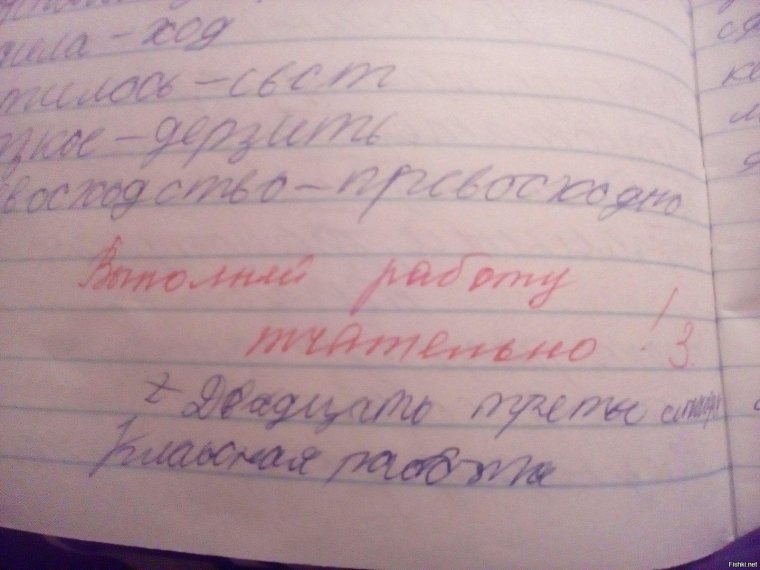 дила – ход
тилось – свст
зкое – дерзить
восходство – превосходно
Выполняй работу
тчательно! 3.
Двадцать третье
Классная работа
Fishki.net